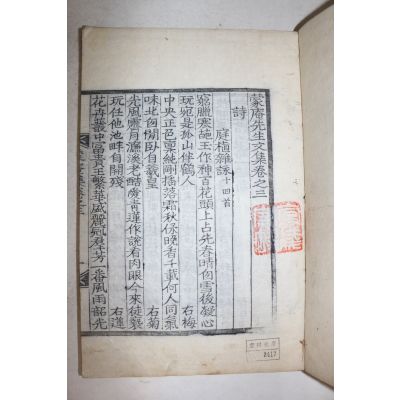 蒙庵先生文集卷之二
詩
庭植雜詠 十四首
窮臘寒葩玉作種百花頭上占先春時向雪後凝心
玩宛是孤山伴鶴人 右梅
中央正色稟純剛搖落霜秋保晚香千載何人同氣
味北窓閒臥自羲皇 右菊
光風霽月濂溪老酷愛青蓮作說看肉眼今來徒褻
玩任他池畔自開殘 右蓮
花卉叢中富貴王繁華盛麗冠羣芳一番風雨韶光
2417